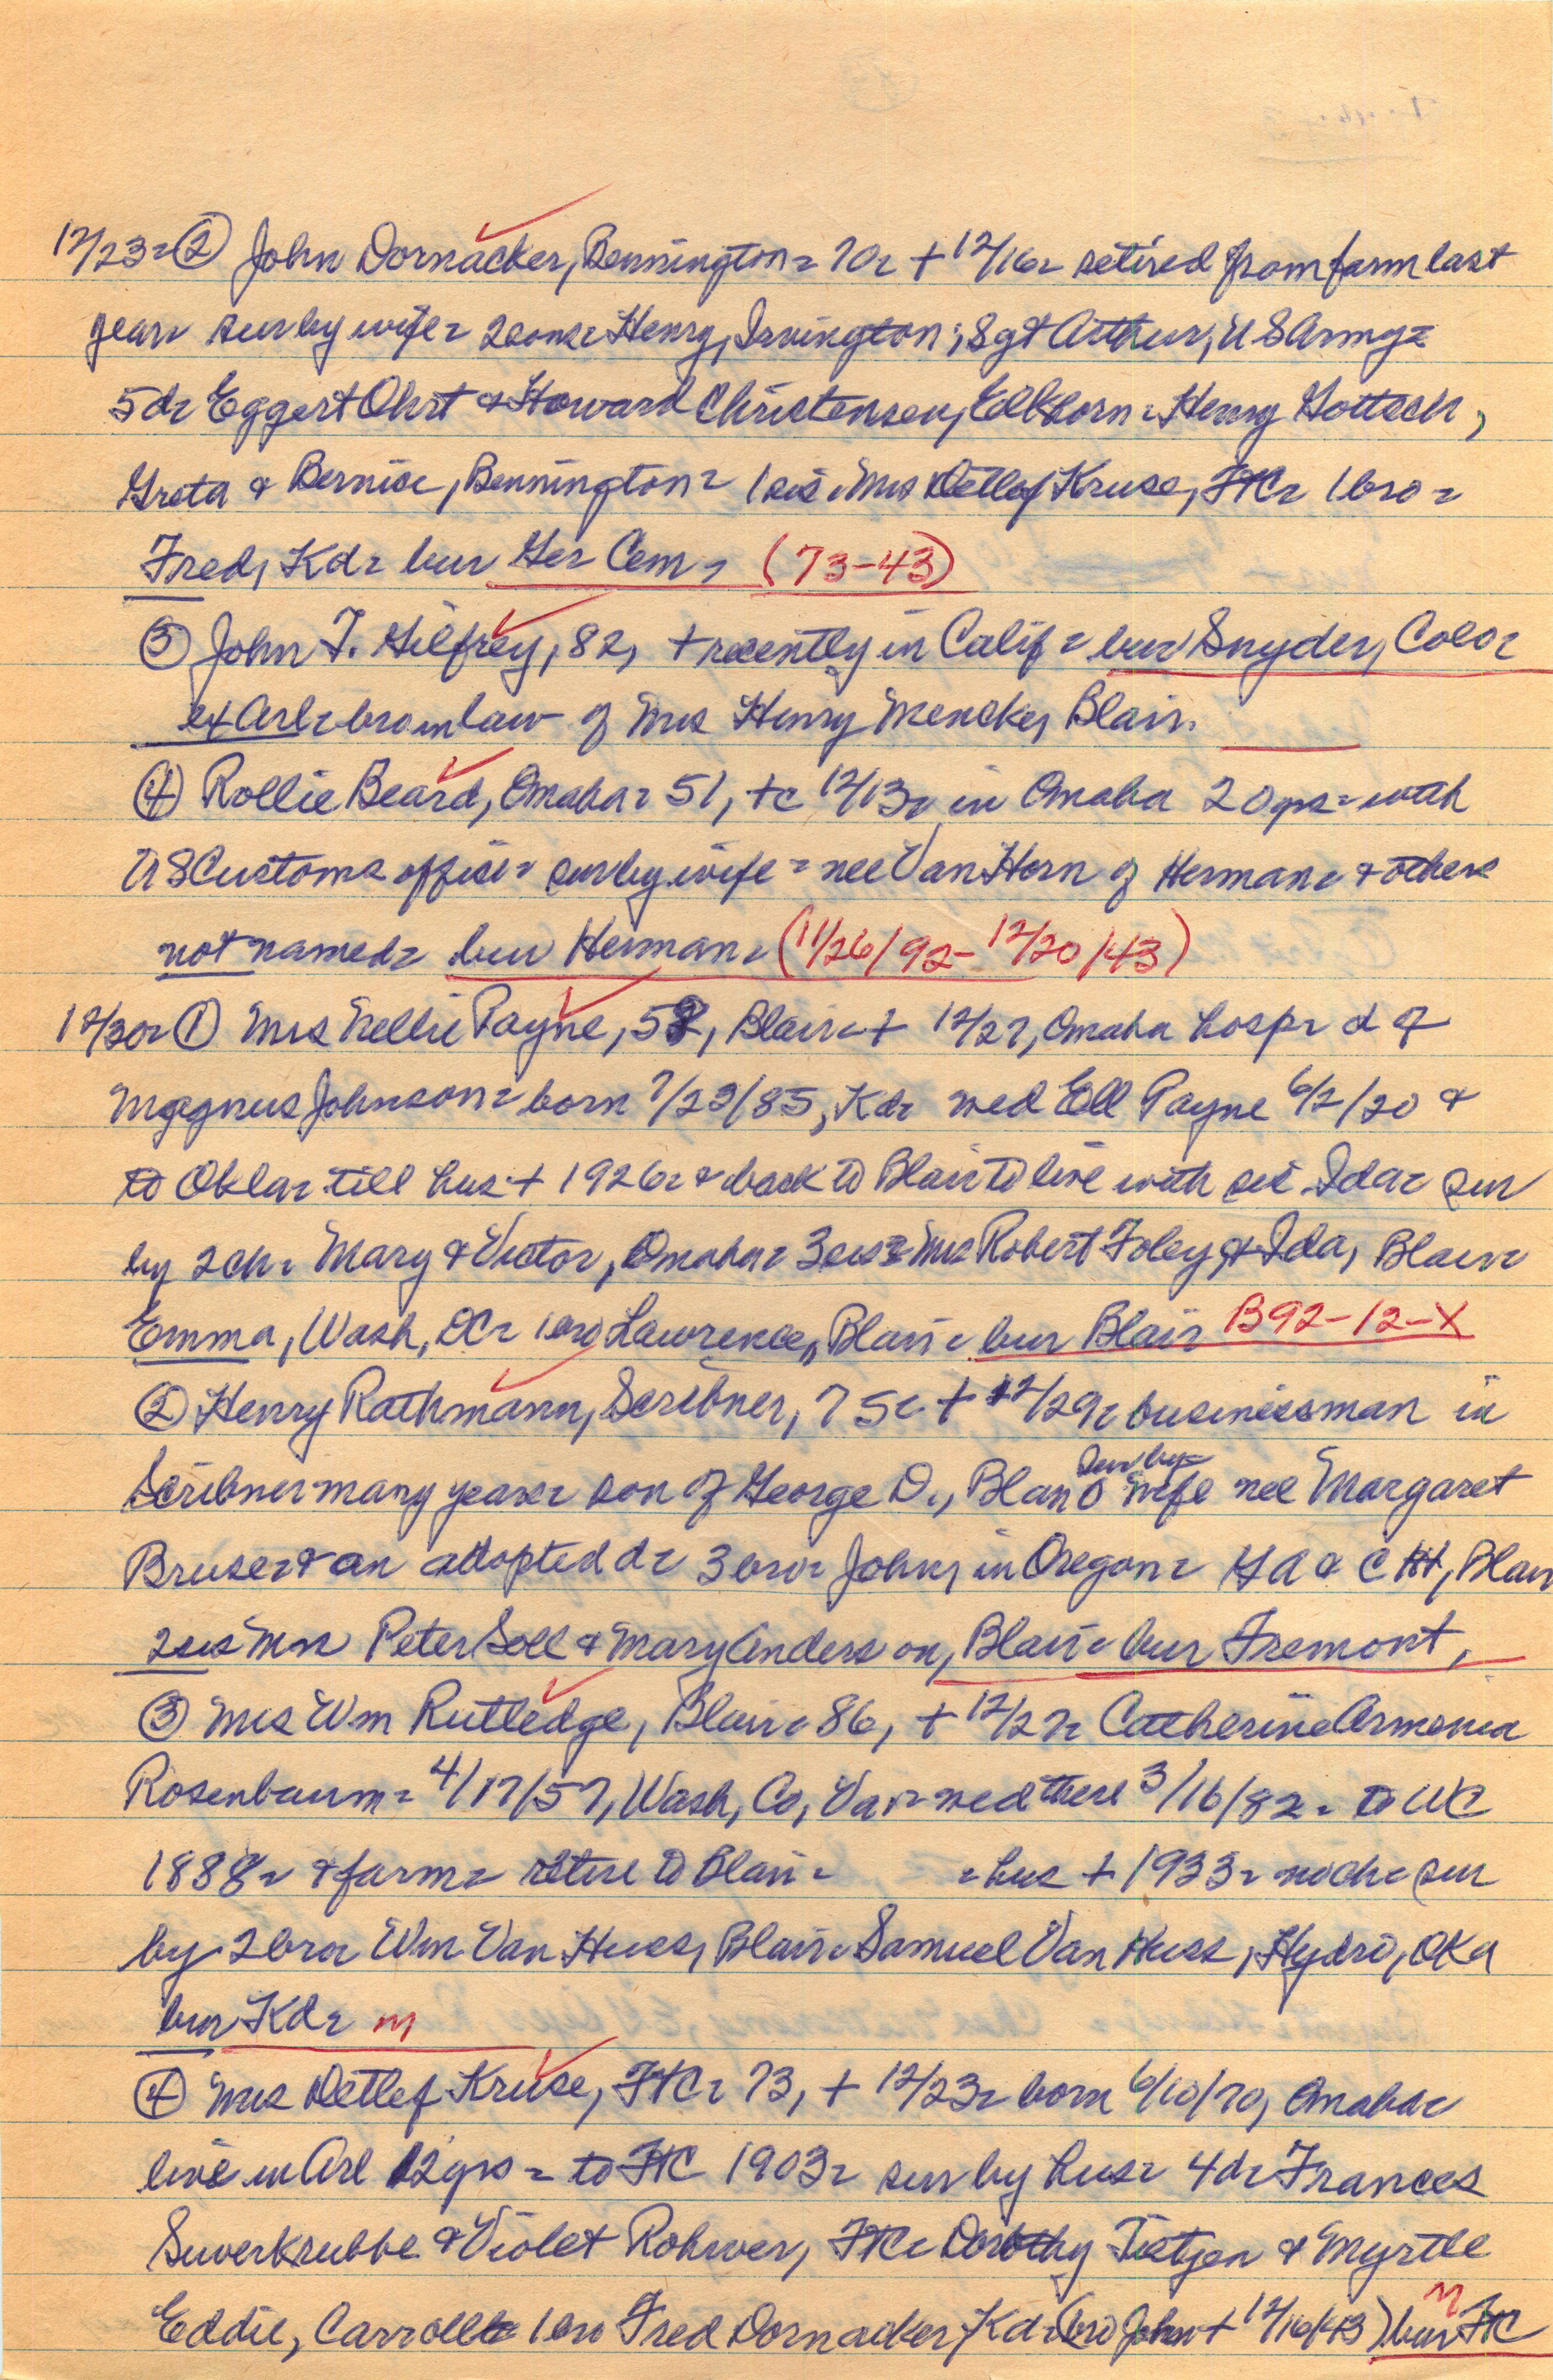 12/23 = ② John Dornacker, Bennington = 70 = + 12/16 = retired from farm last
year = sur by wife = 2 sons = Henry, Irvington; Sgt Arthur, US Army =
5 d = Eggert Ohrt & Howard Christensen, Elkhorn = Henry Gottsch,
Greta & Bernice, Bennington = 1 sis = Mrs Detlef Kruse, FtC = 1 bro =
Fred, Kd = bur Ger Cem = (73-43)
③ John T. Gilfrey, 82, + recently in Calif = bur Snyder, Colo =
ex Arl = bro in law of Mrs Henry Mencke, Blair.
④ Rollie Beard, Omaha = 51, + c 12/13 = in Omaha 20 yrs = with
US Customs office = sur by wife = nee Van Horn of Herman = & others
not named = bur Herman = (11/26/92 - 12/20/43)
12/30 = ① Mrs Nellie Payne, 58, Blair = + 12/27, Omaha hosp = d of
Magnus Johnson = born 7/23/85, Kd = wed Ell Payne 6/2/20 &
to Okla = till hus + 1926 = & back to Blair to live with sis Ida = sur
by 2 ch = Mary & Victor, Omaha = 3 sis = Mrs Robert Foley, & Ida, Blair =
Emma, Wash, DC = 1 bro Lawrence, Blair = bur Blair B92-12-X
② Henry Rathmann, Scribner, 75 = + 12/29 = businessman in
Scribner many years = son of George D., Blair sur by = wife nee Margaret
Bruse = & an adopted d = 3 bro = John, in Oregon = Gd & C H, Blair
2 sis Mrs Peter Soll & Mary Anderson, Blair = bur Fremont,
③ Mrs Wm Rutledge, Blair = 86, + 12/27 = Catherine Armenia
Rosenbaum = 4/17/57, Wash, Co, Va = wed there 3/16/82 = to WC
1888 = & farm = retire to Blair = = hus + 1933 = no ch = sur
by 2 bro = Wm Van Huss, Blair = Samuel Van Huss, Hydro, Oka
bur Kd = M
④ Mrs Detlef Kruse, FtC = 73, + 12/23 = born 6/10/70, Omaha =
live in Arl 12 yrs = to FtC 1903 = sur by hus = 4 d = Frances
Suverkrubbe & Violet Rohwer, FtC = Dorothy Tietjen & Myrtle
Eddie, Carroll = 1 bro Fred Dornacker, Kd = (bro John + 12/16/43) bur FtC M